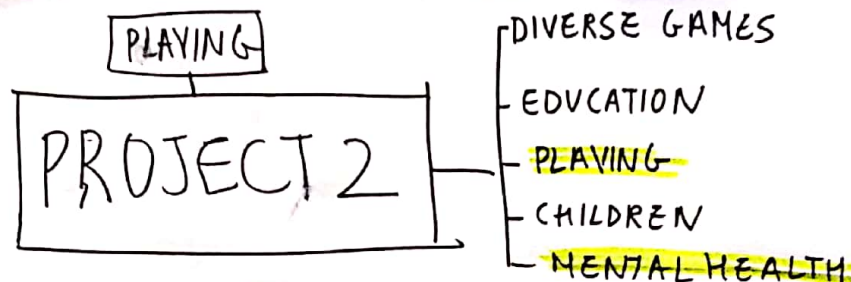 PLAYING
PROJECT 2
DIVERSE GAMES
EDUCATION
PLAYING
CHILDREN
MENTAL HEALTH